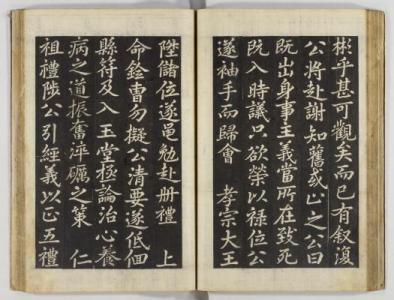 彬乎甚可觀矣而已有叙復
公將赴謝知舊或止之公曰
既出身事主義當所在致死
既入時議只欲榮以祿位公
遂袖手而歸會 孝宗大王
陞儲位遂黽勉赴册禮 上
命銓曹勿擬公清要遂低佪
縣符及入 玉堂極論治心養
病之道振奮淬礪之策 仁
祖禮陟公引經義以正五禮